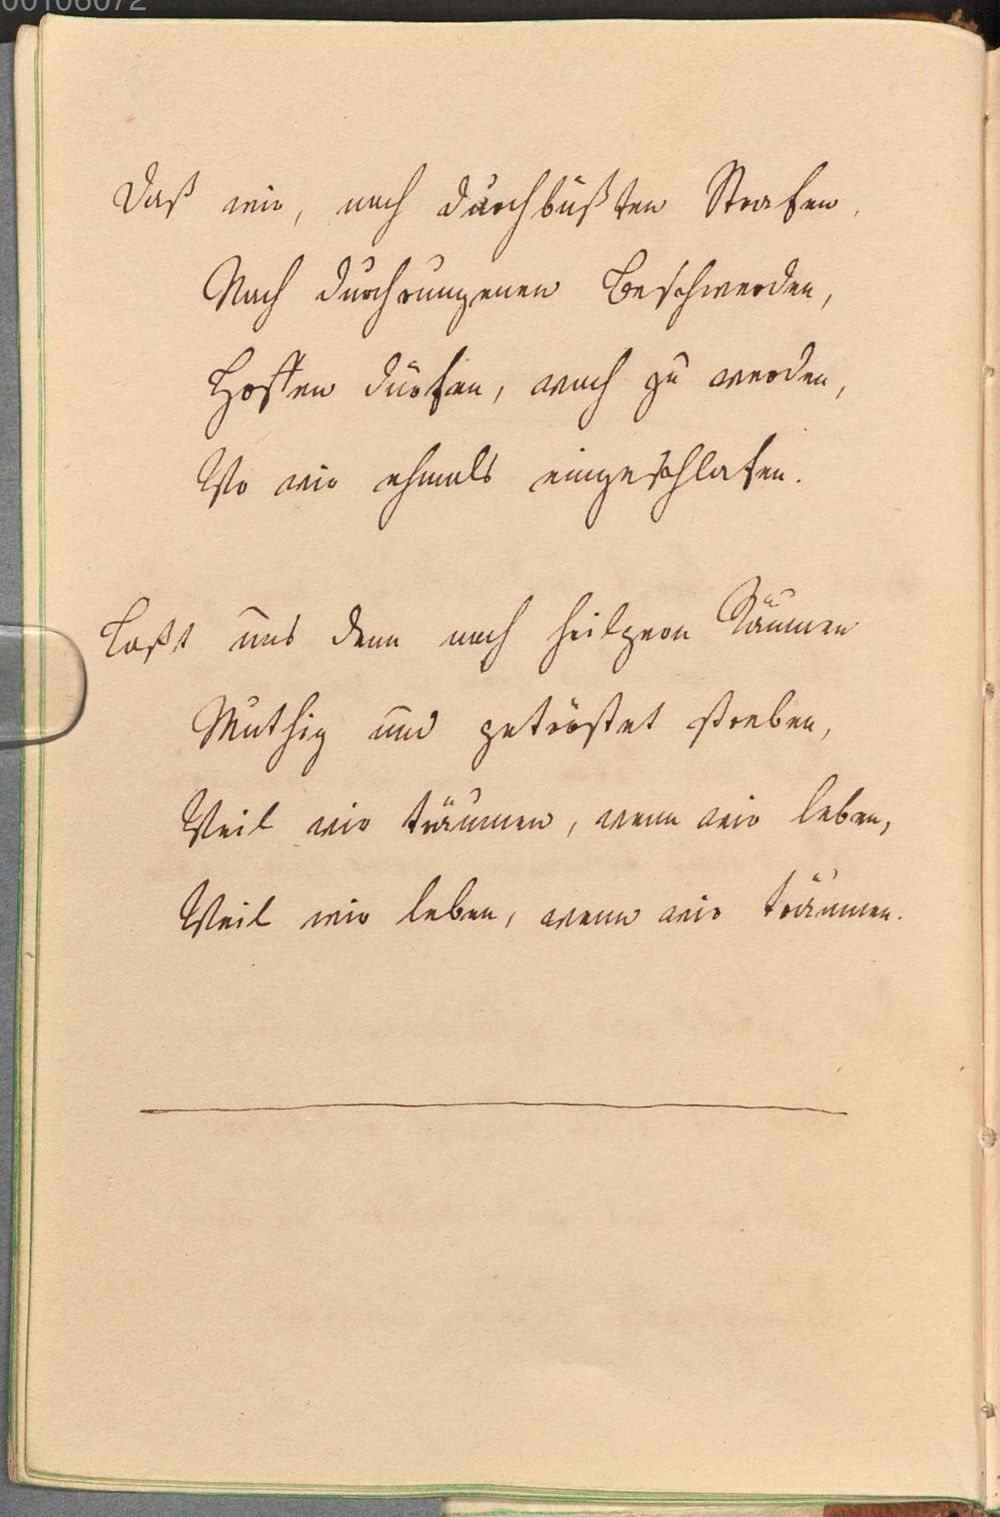 00106072
Daß wir, nach durchbüßten Strafen,
Nach durchrungenen Beschwerden,
Hoffen dürfen, wach zu werden,
Wo wir ehmals eingeschlafen.
Laßt uns denn nach heilgern Räumen
Muthig und getröstet streben,
Weil wir träumen, wenn wir leben,
Weil wir leben, wenn wir träumen.